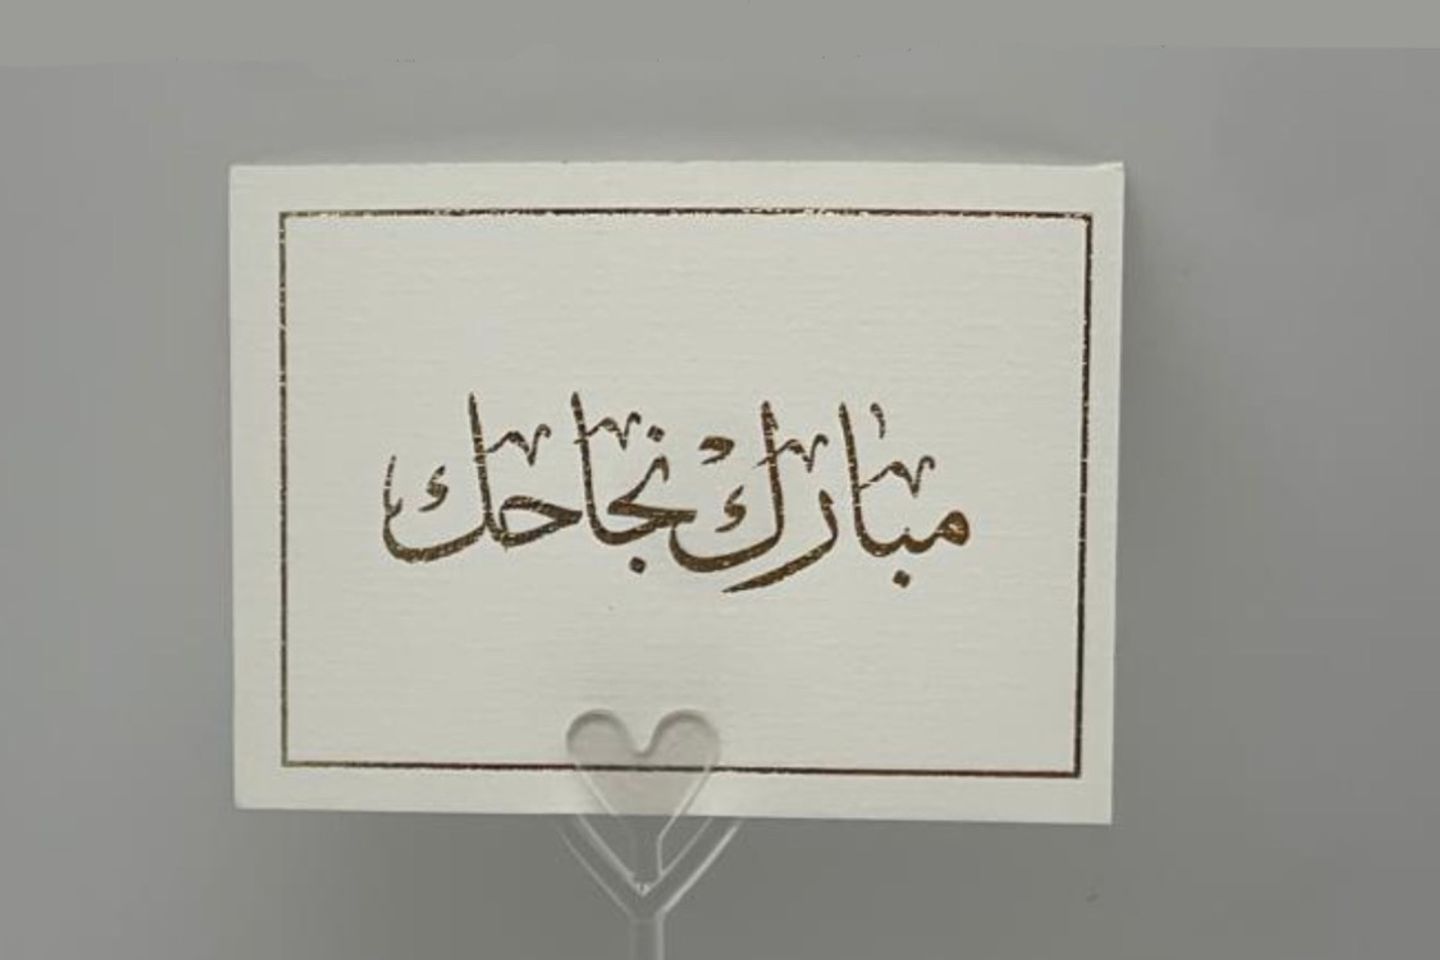 مبارك نجاحك